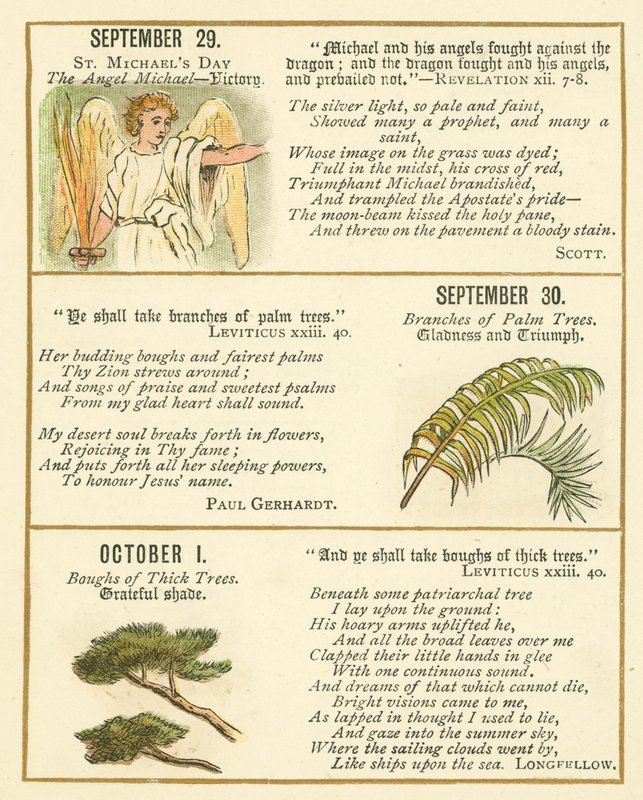 SEPTEMBER 29.
ST. MICHAEL'S DAY
The Angel Michael—Victory.
"Michael and his angels fought against the
dragon; and the dragon fought and his angels,
and prevailed not."—REVELATION xii. 7-8.
The silver light, so pale and faint,
Showed many a prophet, and many a
saint,
Whose image on the grass was dyed;
Full in the midst, his cross of red,
Triumphant Michael brandished,
And trampled the Apostate's pride—
The moon-beam kissed the holy pane,
And threw on the pavement a bloody stain.
SCOTT.
"Ye shall take branches of palm trees."
LEVITICUS xxiii. 40.
Her budding boughs and fairest palms
Thy Zion strews around;
And songs of praise and sweetest psalms
From my glad heart shall sound.
My desert soul breaks forth in flowers,
Rejoicing in Thy fame;
And puts forth all her sleeping powers,
To honour Jesus' name.
PAUL GERHARDT.
SEPTEMBER 30.
Branches of Palm Trees.
Gladness and Triumph.
OCTOBER 1.
Boughs of Thick Trees.
Grateful shade.
"And ye shall take boughs of thick trees."
LEVITICUS xxiii. 40.
Beneath some patriarchal tree
I lay upon the ground:
His hoary arms uplifted he,
And all the broad leaves over me
Clapped their little hands in glee
With one continuous sound.
And dreams of that which cannot die,
Bright visions came to me,
As lapped in thought I used to lie,
And gaze into the summer sky,
Where the sailing clouds went by,
Like ships upon the sea. LONGFELLOW.